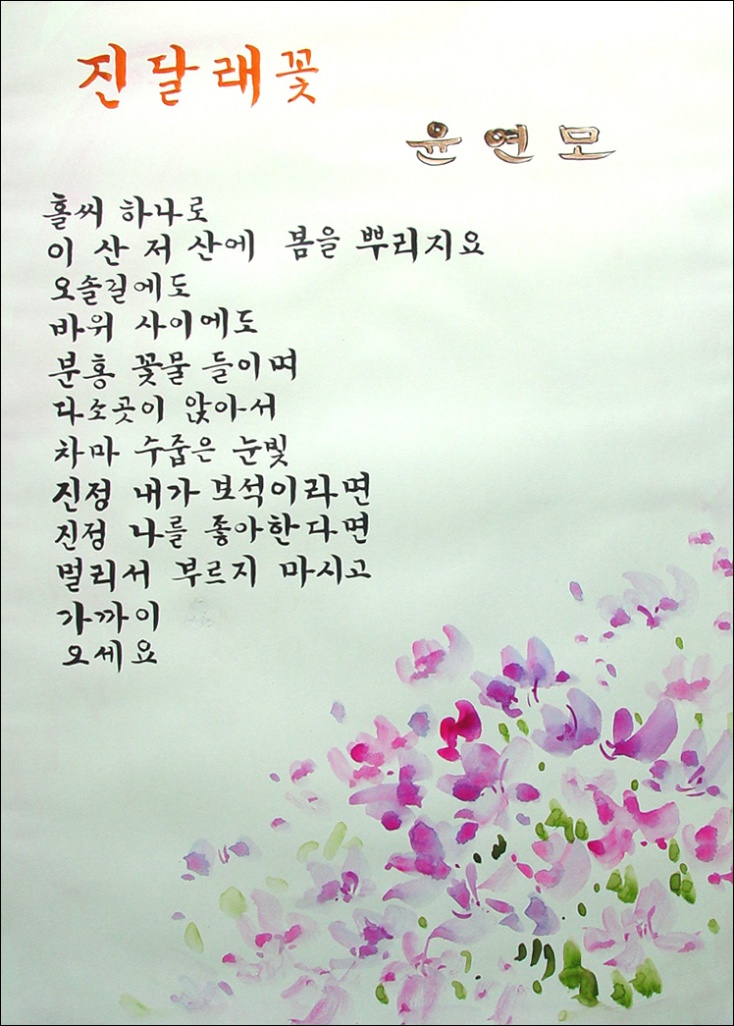 진달래꽃
윤연모
홀씨 하나로
이 산 저 산에 봄을 뿌리지요
오솔길에도
바위 사이에도
분홍 꽃물 들이며
다소곳이 앉아서
차마 수줍은 눈빛
진정 내가 보석이라면
진정 나를 좋아한다면
멀리서 부르지 마시고
가까이
오세요